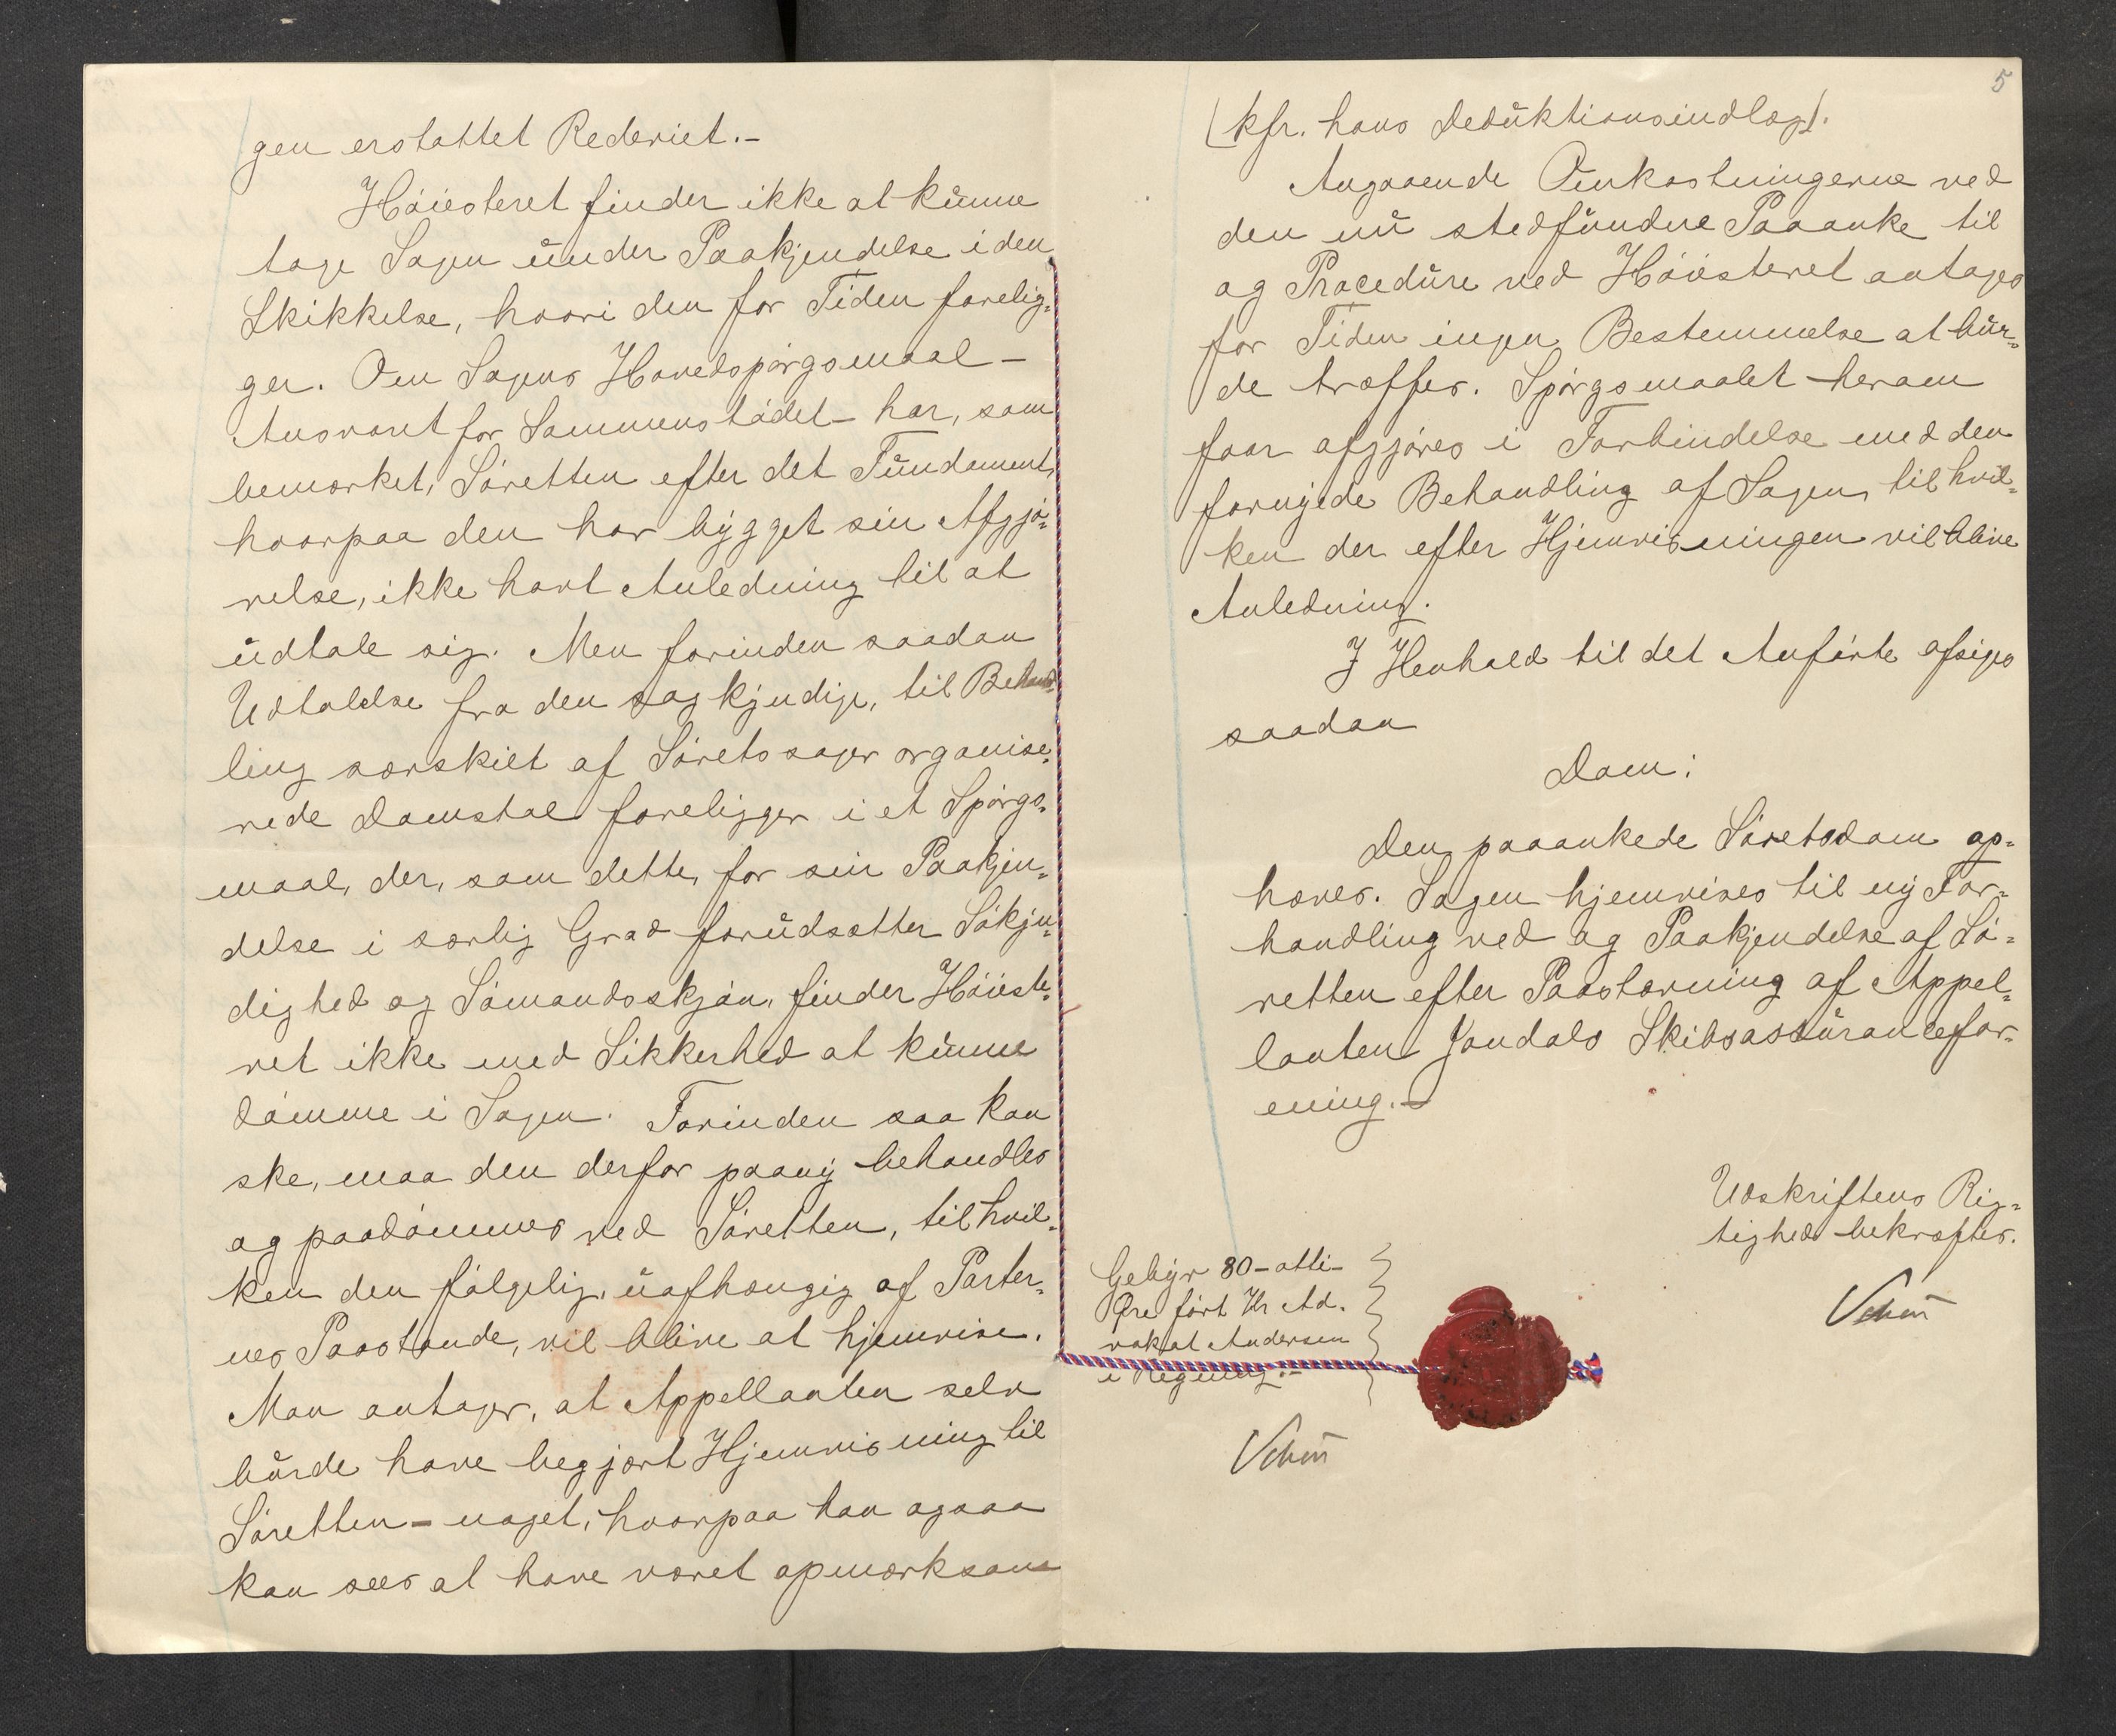 gen erstattet Rederiet.-
Høiesteret finder ikke at kunne
tage Sagen under Paakjendelse i den
Skikkelse, hvori den for Tiden forelig-
ger. Om Sagens Hovedspørgsmaal -
Ansvaret for Sammenstødet - har, som
bemærket, Søretten efter det Fundament,
hvorpaa den har bygget sin Afgjø-
relse, ikke havt Anledning til at
udtale sig. Men forinden saadan
Udtalelse fra den sagkyndige, til Behand-
ling særskilt af Søretssager organise-
rede Domstol foreligger i et Spørgs-
maal, der, som dette, for sin Paakjen-
delse i særlig Grad forudsætter Søkyn-
dighed og Sømandsskjøn, finder Høieste-
ret ikke med Sikkerhed at kunne
dømme i Sagen. Forinden saa kan
ske, maa den derfor paany behandles
og paadømmes ved Søretten, til hvil-
ken den følgelig, uafhængig af Parter-
nes Paastande, vil blive at hjemvise.
Man antager, at Appellanten selv
burde have begjært Hjemvisning til
Søretten - noget, hvorpaa han ogsaa
kan sees at have været opmærksom
5
(kfr. hans Deduktionsindlæg).
Angaaende Omkostningerne ved
den nu stedfundne Paaanke til
og Procedure ved Høiesteret antages
for Tiden ingen Bestemmelse at bur-
de træffes. Spørgsmaalet herom
faar afgjøres i Forbindelse med den
fornyede Behandling af Sagen, til hvil-
ken der efter Hjemvisningen vil blive
Anledning.
I Henhold til det Anførte afsiges
saadan
Dom:
Den paaankede Søretsdom op-
hæves. Sagen hjemvises til ny For-
handling ved og Paakjendelse af Sø-
retten efter Paastævning af Appel-
lanten Jondals Skibsassuranceför-
ening.-
Udskriftens Rig-
tighed bekræftes.
Gebyr 80 - otti -
Øre ført Hr Ad-
vokat Andersen
i Regning.-